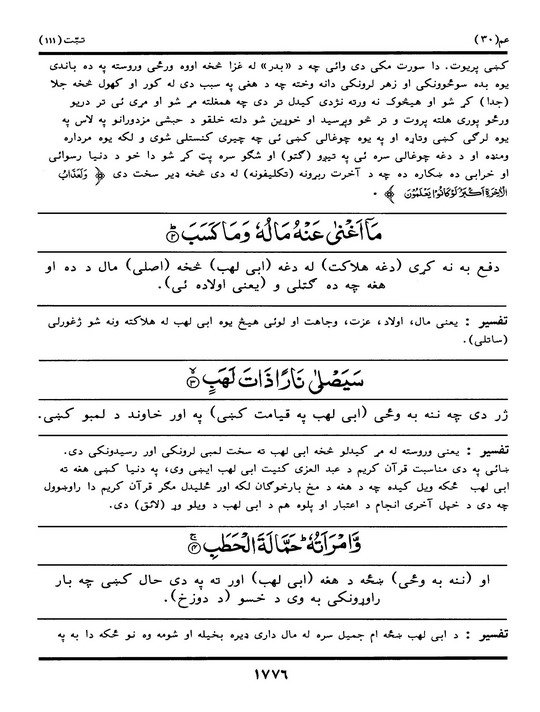 عم(۳۰) تبّت (۱۱۱)
کښی پریوت. دا سورت مکی دی وائی چه د «بدر» له غزا څخه اووه ورځی وروسته په ده باندی
یوه بده سوځوونکی او زهر لرونکی دانه وخته چه د هغی په سبب دی له کور او کهول څخه جلا
(جدا) کړ شو او هیڅوک نه ورته نژدی کیدل تر دی چه همغلته مړ شو او مړی ئی تر دریو
ورځو پوری هلته پروت و تر څو وپړسید او خوړین شو دلته خلقو د حبشی مزدورانو په لاس په
یوه لرګی کښی وتاړه او په یوه چوغالی کښی ئی چه چیری کنستلی شوی و لکه یوه مرداره
ومنډه او د دغه چوغالی سره ئی په تیږو (ګتو) او شګو سره پټ کړ شو دا خو د دنیا رسوائی
او خرابی ده ښکاره ده چه د آخرت ربړونه (تکلیفونه) له دی څخه ډیر سخت دی ﴿ وَلَعَذَابُ
الْاٰخِرَةِ اَکْبَرُ لَوْ کَانُوْا یَعْلَمُوْنَ ﴾ .
مَاۤ اَغْنٰی عَنْهُ مَالُهٗ وَمَا کَسَبَ ۟ؕ۲
دفع به نه کړی (دغه هلاکت) له دغه (ابی لهب) څخه (اصلی) مال د ده او
هغه چه ده ګټلی و (یعنی اولاده ئی).
تفسیر : یعنی مال، اولاد، عزت، وجاهت او لوئی هیڅ یوه ابی لهب له هلاکته ونه شو ژغورلی
(ساتلی).
سَیَصْلٰی نَارًا ذَاتَ لَهَبٍ ۟ۙ۳
ژر دی چه ننه به وځی (ابی لهب په قیامت کښی) په اور خاوند د لمبو کښی.
تفسیر : یعنی وروسته له مړ کیدلو څخه ابی لهب ته سخت لمبی لرونکی اور رسیدونکی دی.
ښائی په دی مناسبت قرآن کریم د عبد العزی کنیت ابی لهب ایښی وی، په دنیا کښی هغه ته
ابی لهب ځکه ویل کیده چه د هغه د مخ بارخوګان لکه اور ځلیدل مګر قرآن کریم دا راوښوول
چه دی د خپل آخری انجام د اعتبار او پلوه هم د ابی لهب د ویلو وړ (لائق) دی.
وَّامْرَاَتُهٗ ؕ حَمَّالَةَ الْحَطَبِ ۟ۚ۴
او (ننه به وځی) ښځه د هغه (ابی لهب) اور ته په دی حال کښی چه بار
راوړونکی به وی د خسو (د دوزخ).
تفسیر : د ابی لهب ښځه ام جمیل سره له مال داری ډیره بخیله او شومه وه نو ځکه دا به په
۱۷۷۶